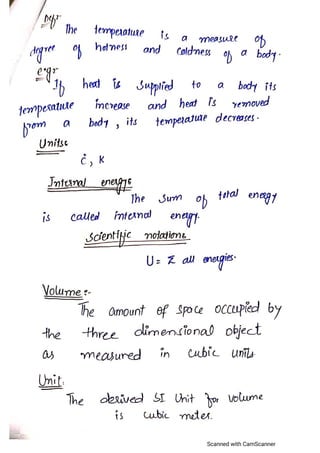 Def:
The temperature is a measure of
degree of hotness and coldness of a body.
e.g:
If heat is supplied to a body its
temperature increase and heat is removed
from a body, its temperature decreases.
Units:
c°, K
Internal energy:
The sum of total energy
is called internal energy.
Scientific notation:
U = Σ all energies.
Volume:-
The amount of space occupied by
the three dimensional object
as measured in cubic units
Unit:
The derived SI Unit for volume
is cubic meter.
Scanned with CamScanner